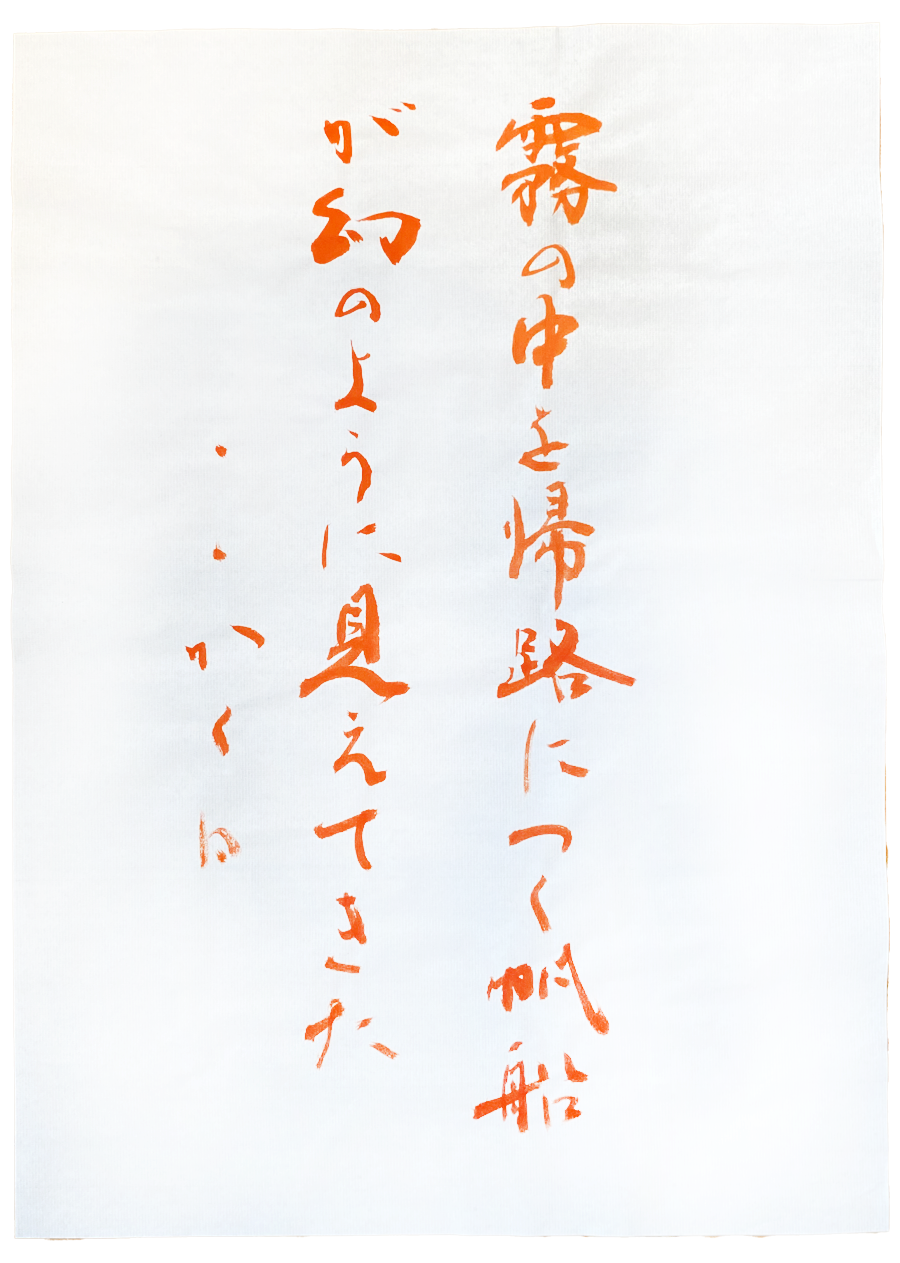 霧の中を帰路につく帆船
が幻のように見えてきた
・・かくね